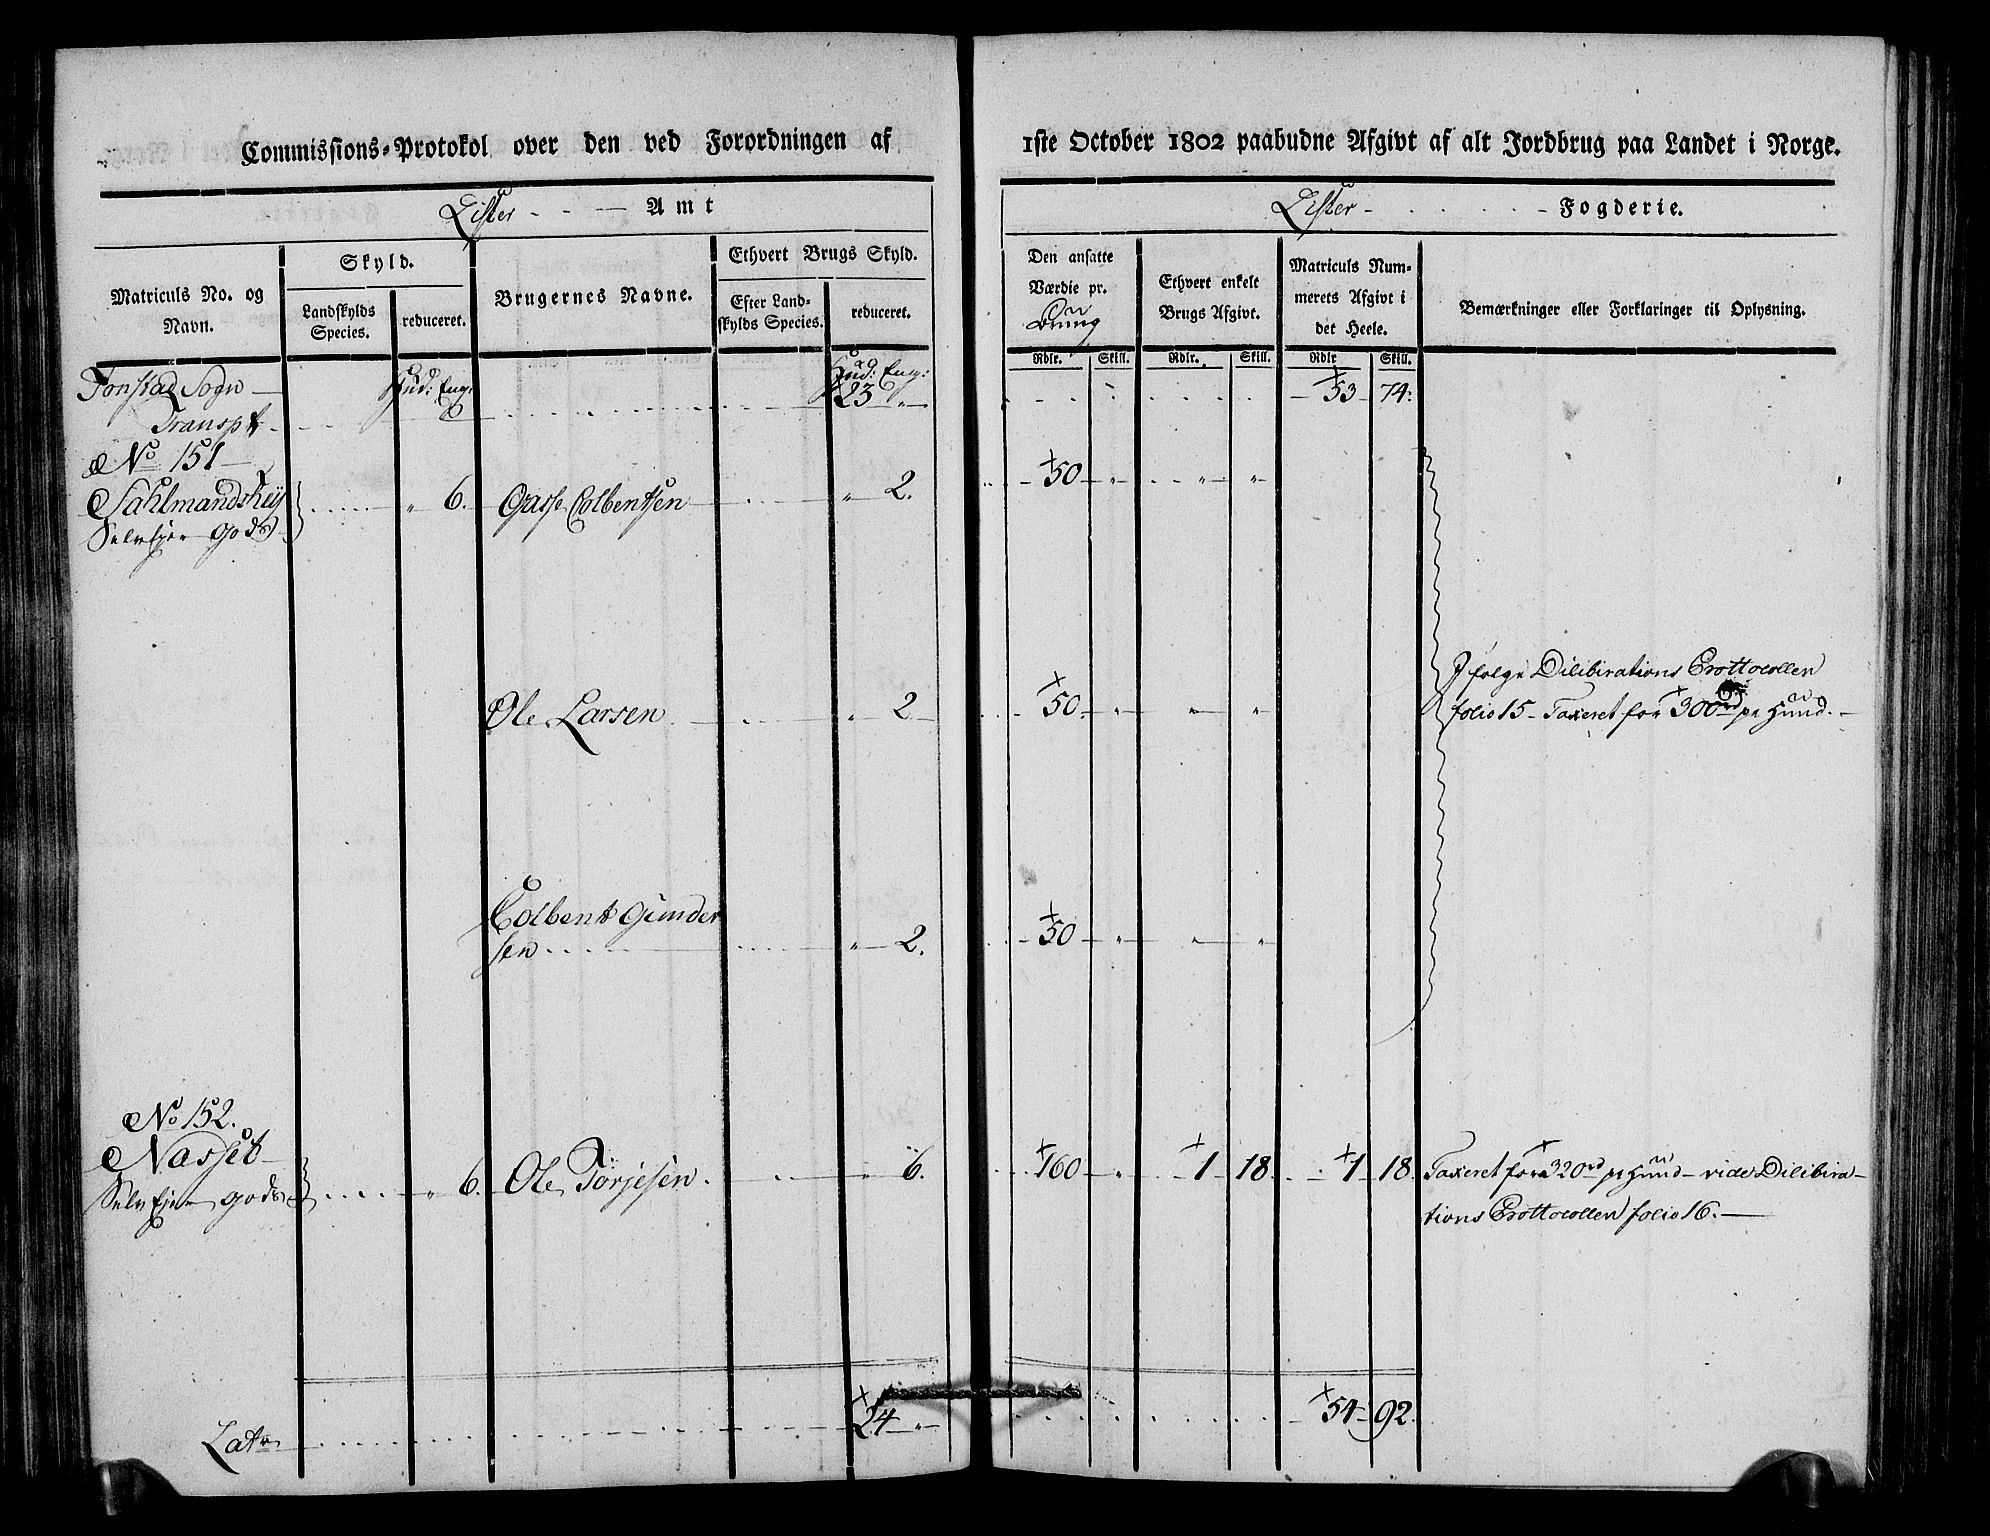 Commissions-Protokol over den ved Forordningen af
1ste October 1802 paabudne Afgivt af alt Jordbrug paa Landet i Norge.
Lister Amt
Lister Fogderie.
Matriculs No. og
Navn.
Skyld.
Landskylds
Species.
reduceret.
Brugernes Navne.
Ethvert Brugs Skyld.
Efter Land-
skylds Species.
reduceret.
Den ansatte
Værdie pr.
Bruug
Rdlr. Skill.
Ethvert enkelt
Brugs Afgivt.
Rdlr. Skill.
Matriculs Num-
merets Afgivt i
det Heele.
Rdlr Skill.
Bemærkninger eller Forklaringer til Oplysning.
Tonstad Sogn Hud: Eng: Hud: Eng:
Transpt. 23 " 53 74.
No 151
Sahlmandshey " 6. Gasse Colbentsen " 2. 50 " " "
Selvejer gods
Ifølge Dilibirations Prottocollen
Ole Larsen " 2 50. " " " folio 15 - Taxeret for 300 rd pr Hud.
Colbent Gunder
sen " 2. 50 " " "
No 152.
Nasset " 6. Ole Torjesen " 6. 160 " 1 18. 1 18. Taxeret for 320 rd pr Hud - vide Dilibira-
Selvejer gods tions Prottocollen folio 16.
Latr 24 " 54 92.